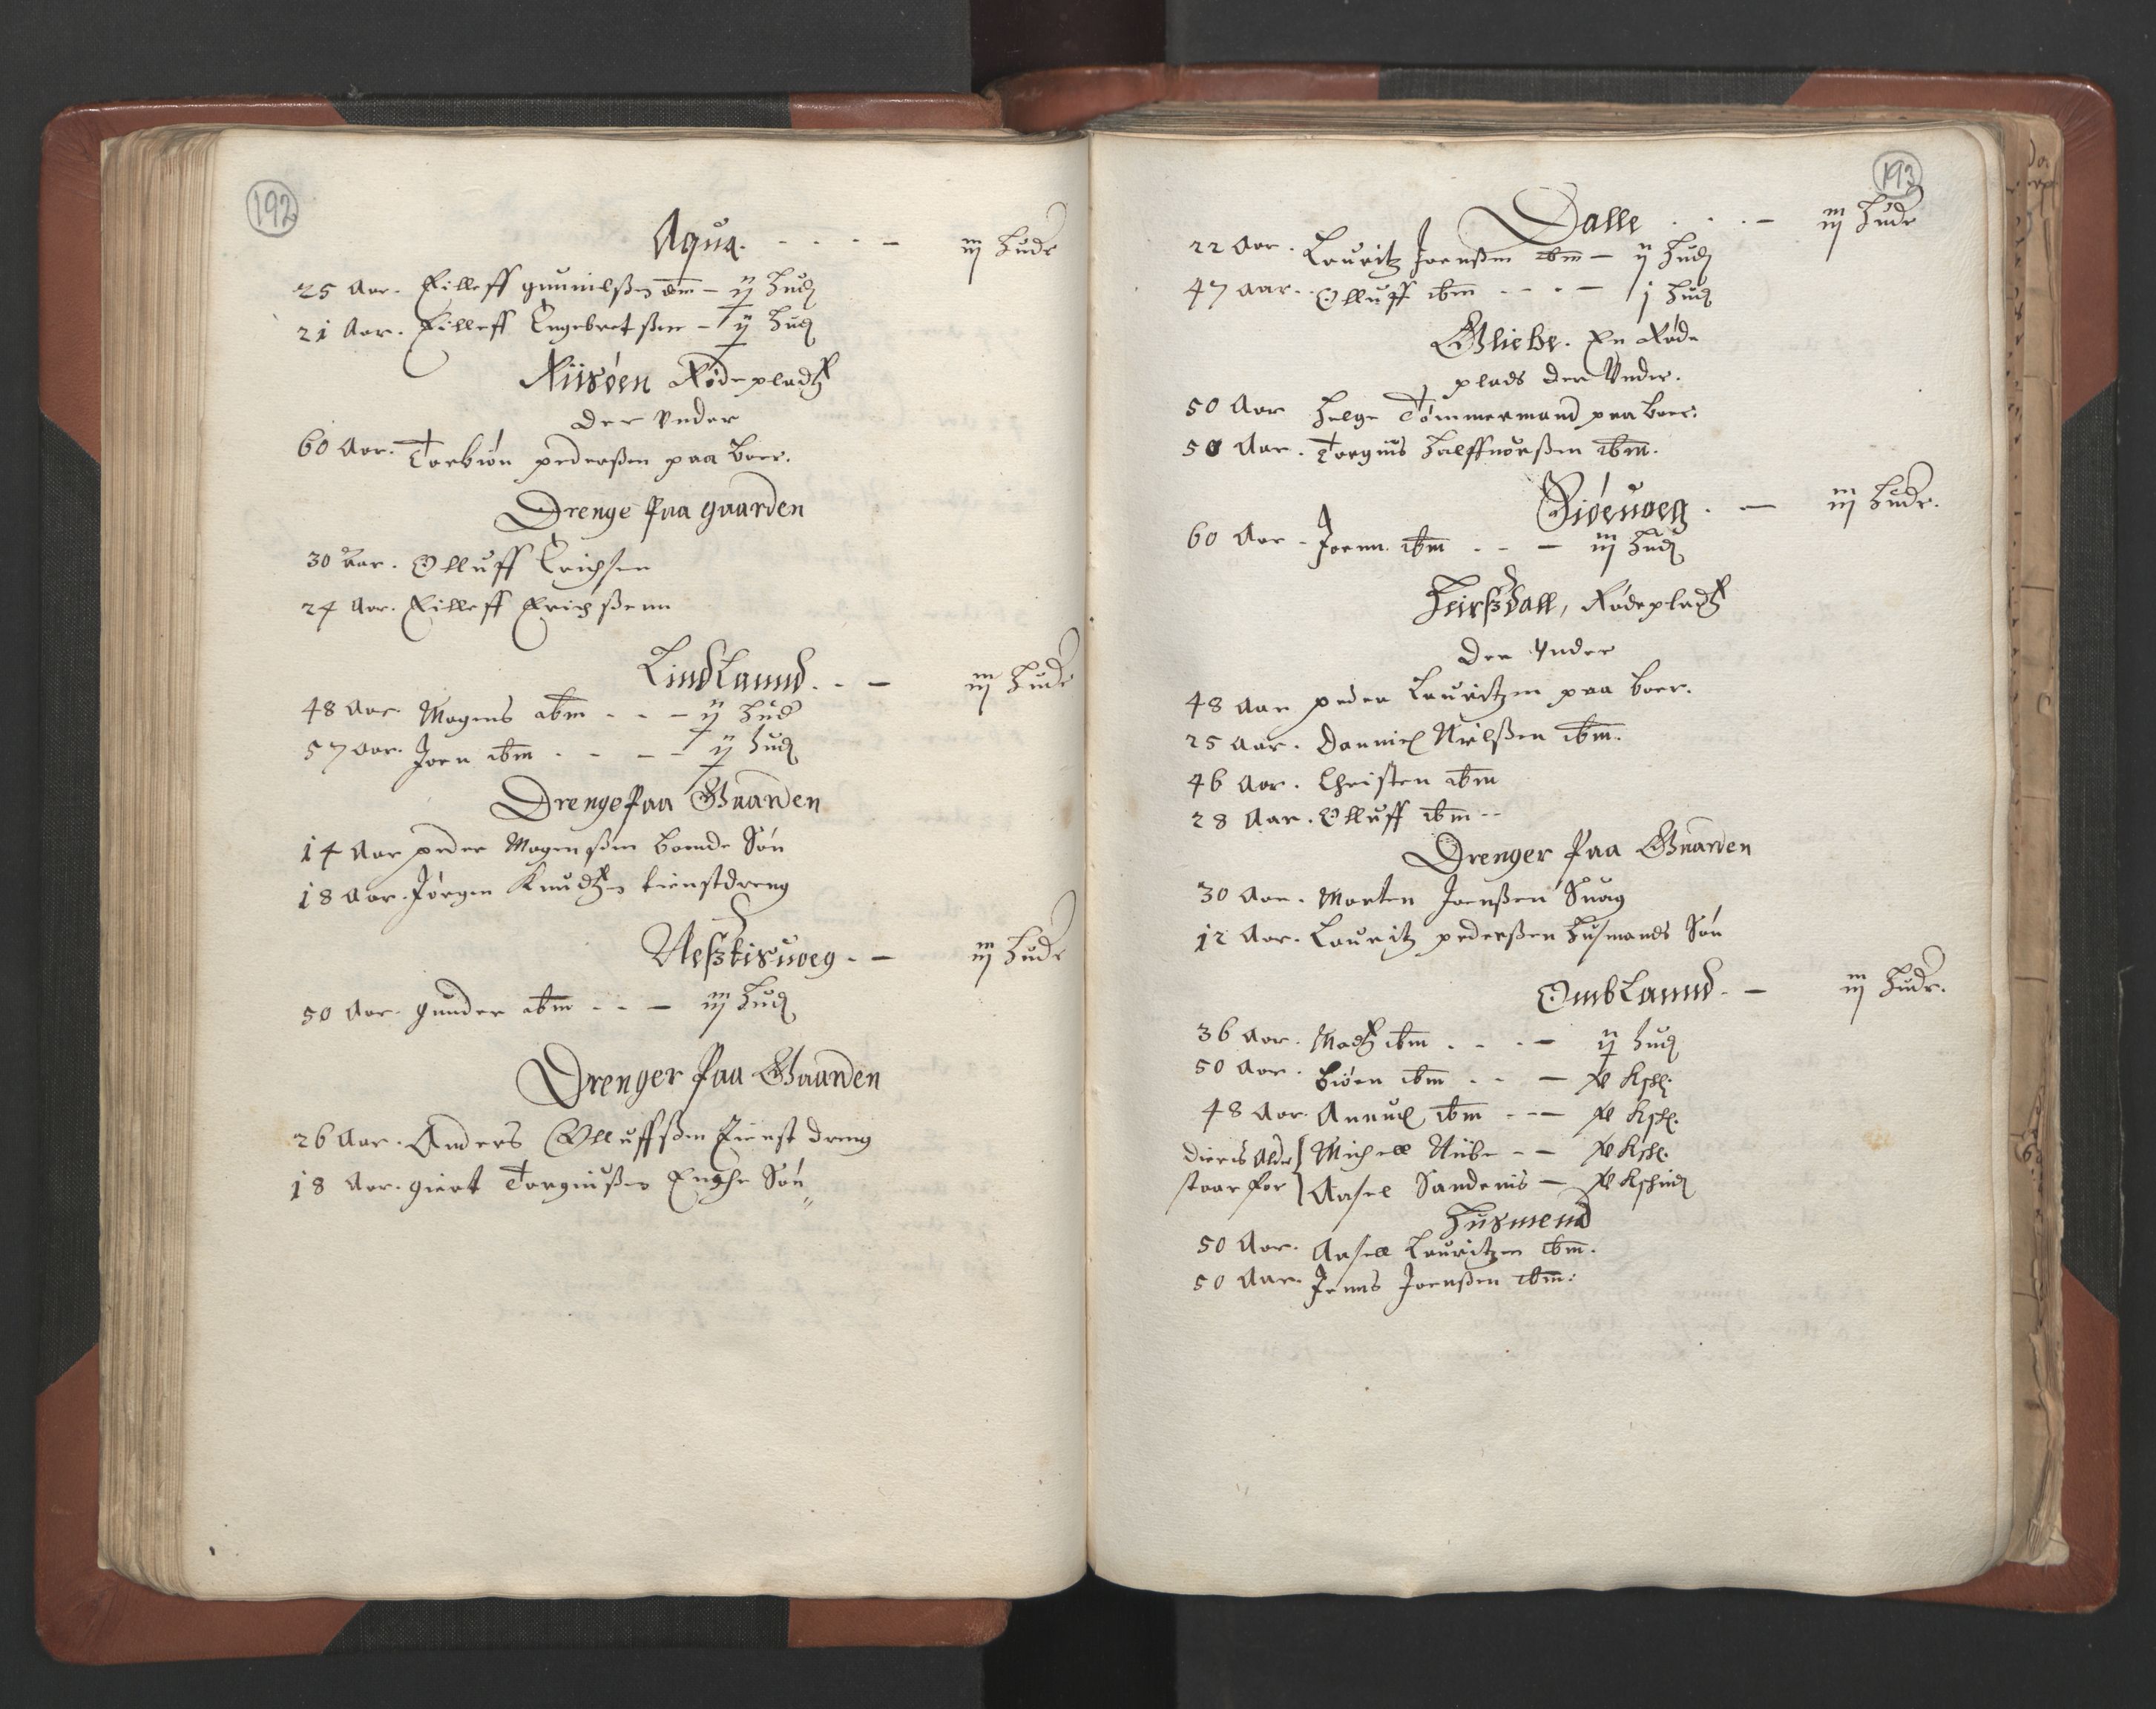 192
Aqua. - - - - iij Hude
25 Aar. Eilleff gunnilßen ibm - ij Hud
21 Aar. Eilleff Engebretßen - ij Hud
Riisøen Rødepladtz
der vnder
60 Aar. Torbiøn pederßen paa boer.
Drenge paa gaarden
30 Aar. Olluff Erichsen
24 Aar. Eilleff Erichßenn
Lindlannd. - - iij Hude
48 Aar. Mogens ibm - - - ij Hud
57 Aar. Joen ibm - - - - ij Hud
Drenge paa Gaarden
14 Aar peder Mogenßen bonde Søn
18 Aar. Jørgen Knudtzen tienstdreng
Neßkisuoeg - - iij Hude
50 Aar. gunder ibm - - - iij Hud
Drenger paa Gaarden
26 Aar. Anders Olluffßen tienst dreng
18 Aar. giert Torgiußen Enche Søn
193
Dalle . . . - iij Hude
22 Aar. Lauritz Joenßen ibm - ij Hud
47 aar. Olluff ibm - - - - j Hud
Gliebe. En Røde
plads der Vnder.
50 Aar Helge Tømmermand paa boer.
50 Aar. Torgius Halffuorßen ibm.
Giøeuoeg. - iij Hude.
60 Aar - Joenn ibm - - - iij Hud
Heirßdall, Rødepladtz
der Vnder
48 Aar peder Lauritzen paa boer.
25 Aar. Danniel Nielßen ibm.
46 Aar. Christen ibm
28 Aar. Olluff ibm --
Drenger paa Gaarden
30 Aar. Morten Joenßen Suag
12 Aar. Lauritz pederßen Husmands Søn
Omblannd. - iij Hude.
36 Aar. Madtz ibm . . . - ij Hud
50 Aar. biøen ibm - - -
48 Aar. Annud ibm - - -
dieris Alder Michell Niibe - -
staar for Aasel Sandenis -
Husmend
50 Aar. Aasell Lauritzen ibm.
50 Aar. Jenns Joenßen ibm: